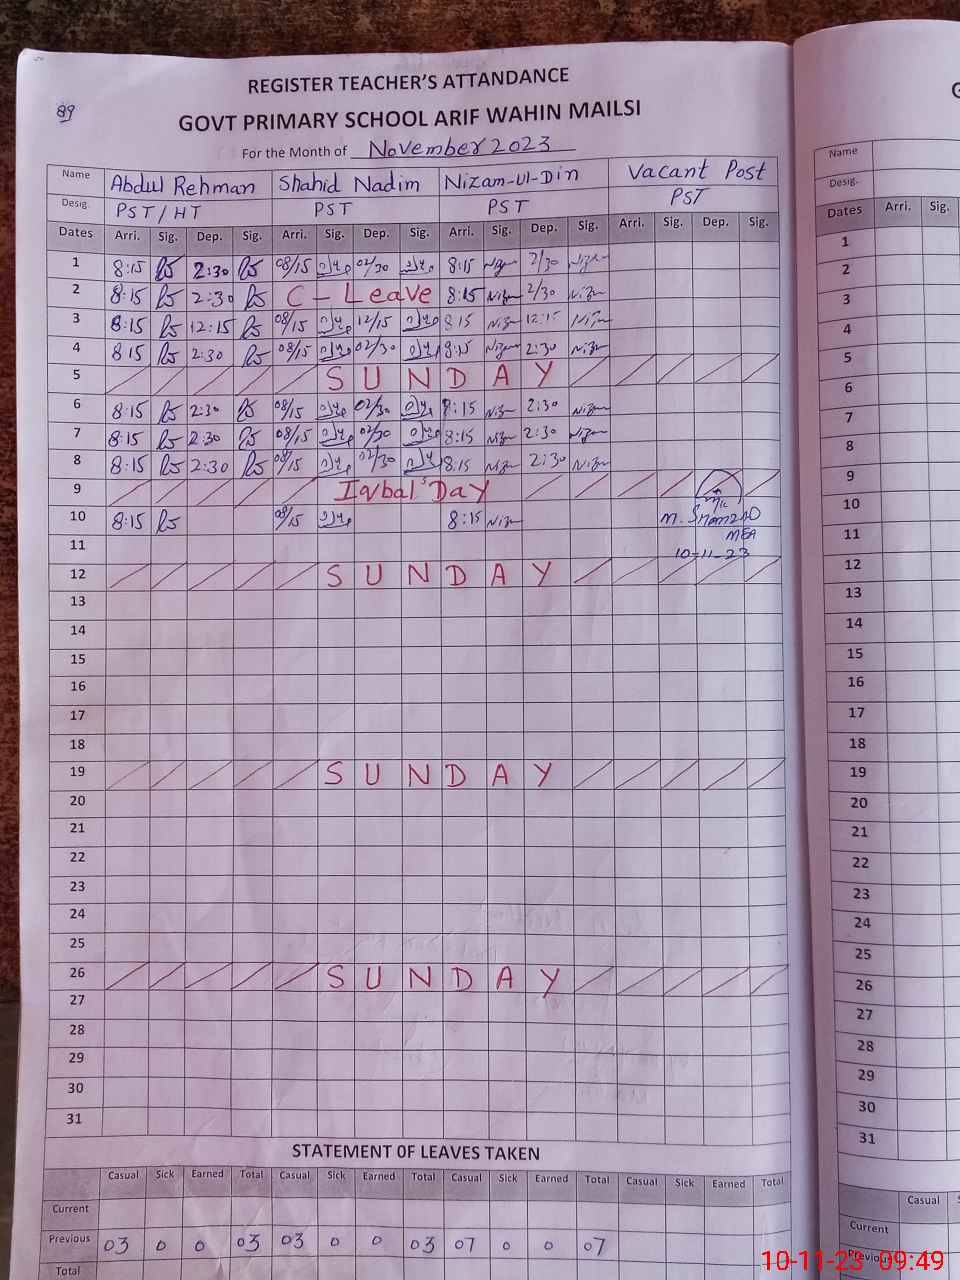 89
REGISTER TEACHER'S ATTANDANCE
GOVT PRIMARY SCHOOL ARIF WAHIN MAILSI
For the Month of November 2023
Name Abdul Rehman Shahid Nadim Nizam-Ul-Din Vacant Post
Desig. PST/HT PST PST PST
Dates Arri. Sig. Dep. Sig. Arri. Sig. Dep. Sig. Arri. Sig. Dep. Sig. Arri. Sig. Dep. Sig.
1 8:15 2:30 08/15 02/30 8:15 Nizam 2/30 Nizam
2 8:15 2:30 C-Leave 8:15 Nizam 2/30 Nizam
3 8:15 12:15 08/15 12/15 8:15 Nizam 12:15 Nizam
4 8:15 2:30 08/15 02/30 8:15 Nizam 2:30 Nizam
5 SUNDAY
6 8:15 2:30 08/15 02/30 8:15 Nizam 2:30 Nizam
7 8:15 2:30 08/15 02/30 8:15 Nizam 2:30 Nizam
8 8:15 2:30 08/15 02/30 8:15 Nizam 2:30 Nizam
9 Iqbal's Day
10 8:15 08/15 8:15 Nizam M. Shamzad
MEA
11 10-11-23
12 SUNDAY
13
14
15
16
17
18
19 SUNDAY
20
21
22
23
24
25
26 SUNDAY
27
28
29
30
31
STATEMENT OF LEAVES TAKEN
Casual Sick Earned Total Casual Sick Earned Total Casual Sick Earned Total Casual Sick Earned Total
Current
Previous 03 0 0 03 03 0 0 03 07 0 0 07
Total
G
Name
Desig.
Dates Arri. Sig.
1
2
3
4
5
6
7
8
9
10
11
12
13
14
15
16
17
18
19
20
21
22
23
24
25
26
27
28
29
30
31
Casual
Current
Previous
10-11-23 09:49